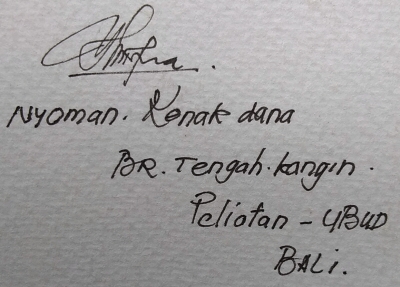 Nyoman. Konak dana
BR. Tengah. kangin.
Peliatan - UBUD
BALi.